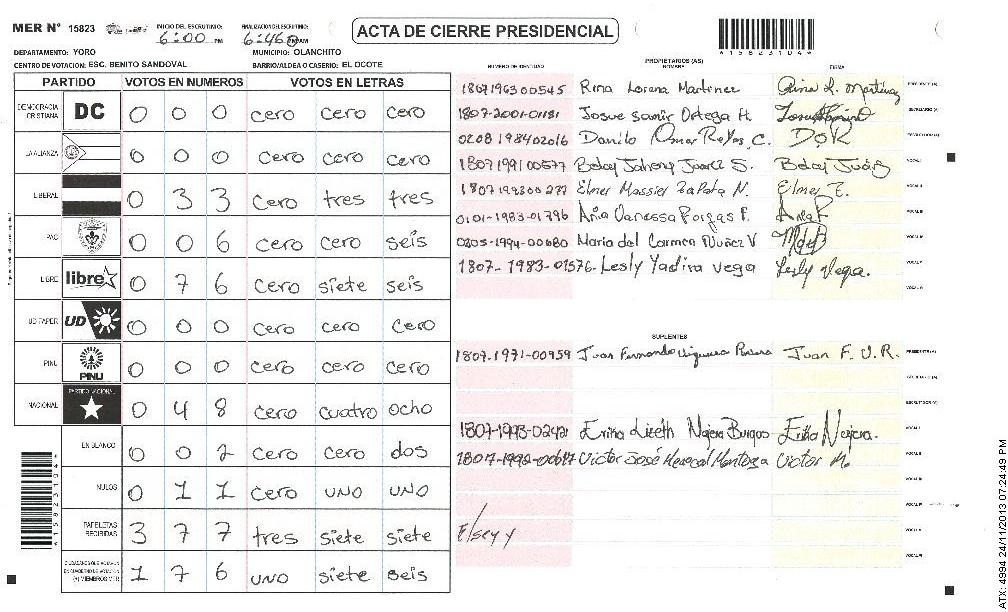 MER Nº 15823 INICIO DEL ESCRUTINIO: 6:00 PM FINALIZACION ESCRUTINIO: 6:46 AM
ACTA DE CIERRE PRESIDENCIAL
*A158231044*
DEPARTAMENTO: YORO MUNICIPIO: OLANCHITO
CENTRO DE VOTACION: ESC. BENITO SANDOVAL BARRIO/ALDEA O CASERIO: EL OCOTE
PARTIDO VOTOS EN NUMEROS VOTOS EN LETRAS
DEMOCRACIA CRISTIANA DC 0 0 0 cero cero cero
LA ALIANZA 0 0 0 cero cero cero
LIBERAL 0 3 3 cero tres tres
PAC 0 0 6 cero cero seis
LIBRE libre 0 7 6 cero siete seis
UD FAPER UD 0 0 0 cero cero cero
PINU PINU 0 0 0 cero cero cero
NACIONAL PARTIDO NACIONAL 0 4 8 cero cuatro ocho
EN BLANCO 0 0 2 cero cero dos
NULOS 0 1 1 cero uno uno
PAPELETAS RECIBIDAS 3 7 7 tres siete siete
CIUDADANOS QUE VOTARON EN CUADERNO DE VOTACION (+) MIEMBROS MER 1 7 6 uno siete seis
PROPIETARIOS (AS)
NUMERO DE IDENTIDAD NOMBRE FIRMA
1807196300545 Rina Lorena Martinez Rina L. Martinez PRESIDENTE (A)
1807-2001-01181 Josue samir Ortega H. SECRETARIO (A)
0208198402016 Danilo Omar Reyes C. DOR ESCRUTADOR (A)
1807199100577 Juarez S. VOCAL I
1807199300277 Elmer Zapata N. Elmer VOCAL II
0101-1983-01796 Vanessa VOCAL III
0205-1994-00680 Maria del Carmen Nuñez V VOCAL IV
1807-1983-01576 Lesly Yadira vega Lesly Vega. VOCAL V
VOCAL VI
SUPLENTES
1807-1971-00959 Juan Fernando Juan F. U. R. PRESIDENTE (A)
SECRETARIO (A)
ESCRUTADOR (A)
1807-1993-0242 Erika Lizeth Najera Burgos Erika Najera. VOCAL I
Victor José Victor M. VOCAL II
VOCAL III
VOCAL IV
VOCAL V
VOCAL VI
*A158231044*
ATX: 4994 24/11/2013 07:24:49 PM